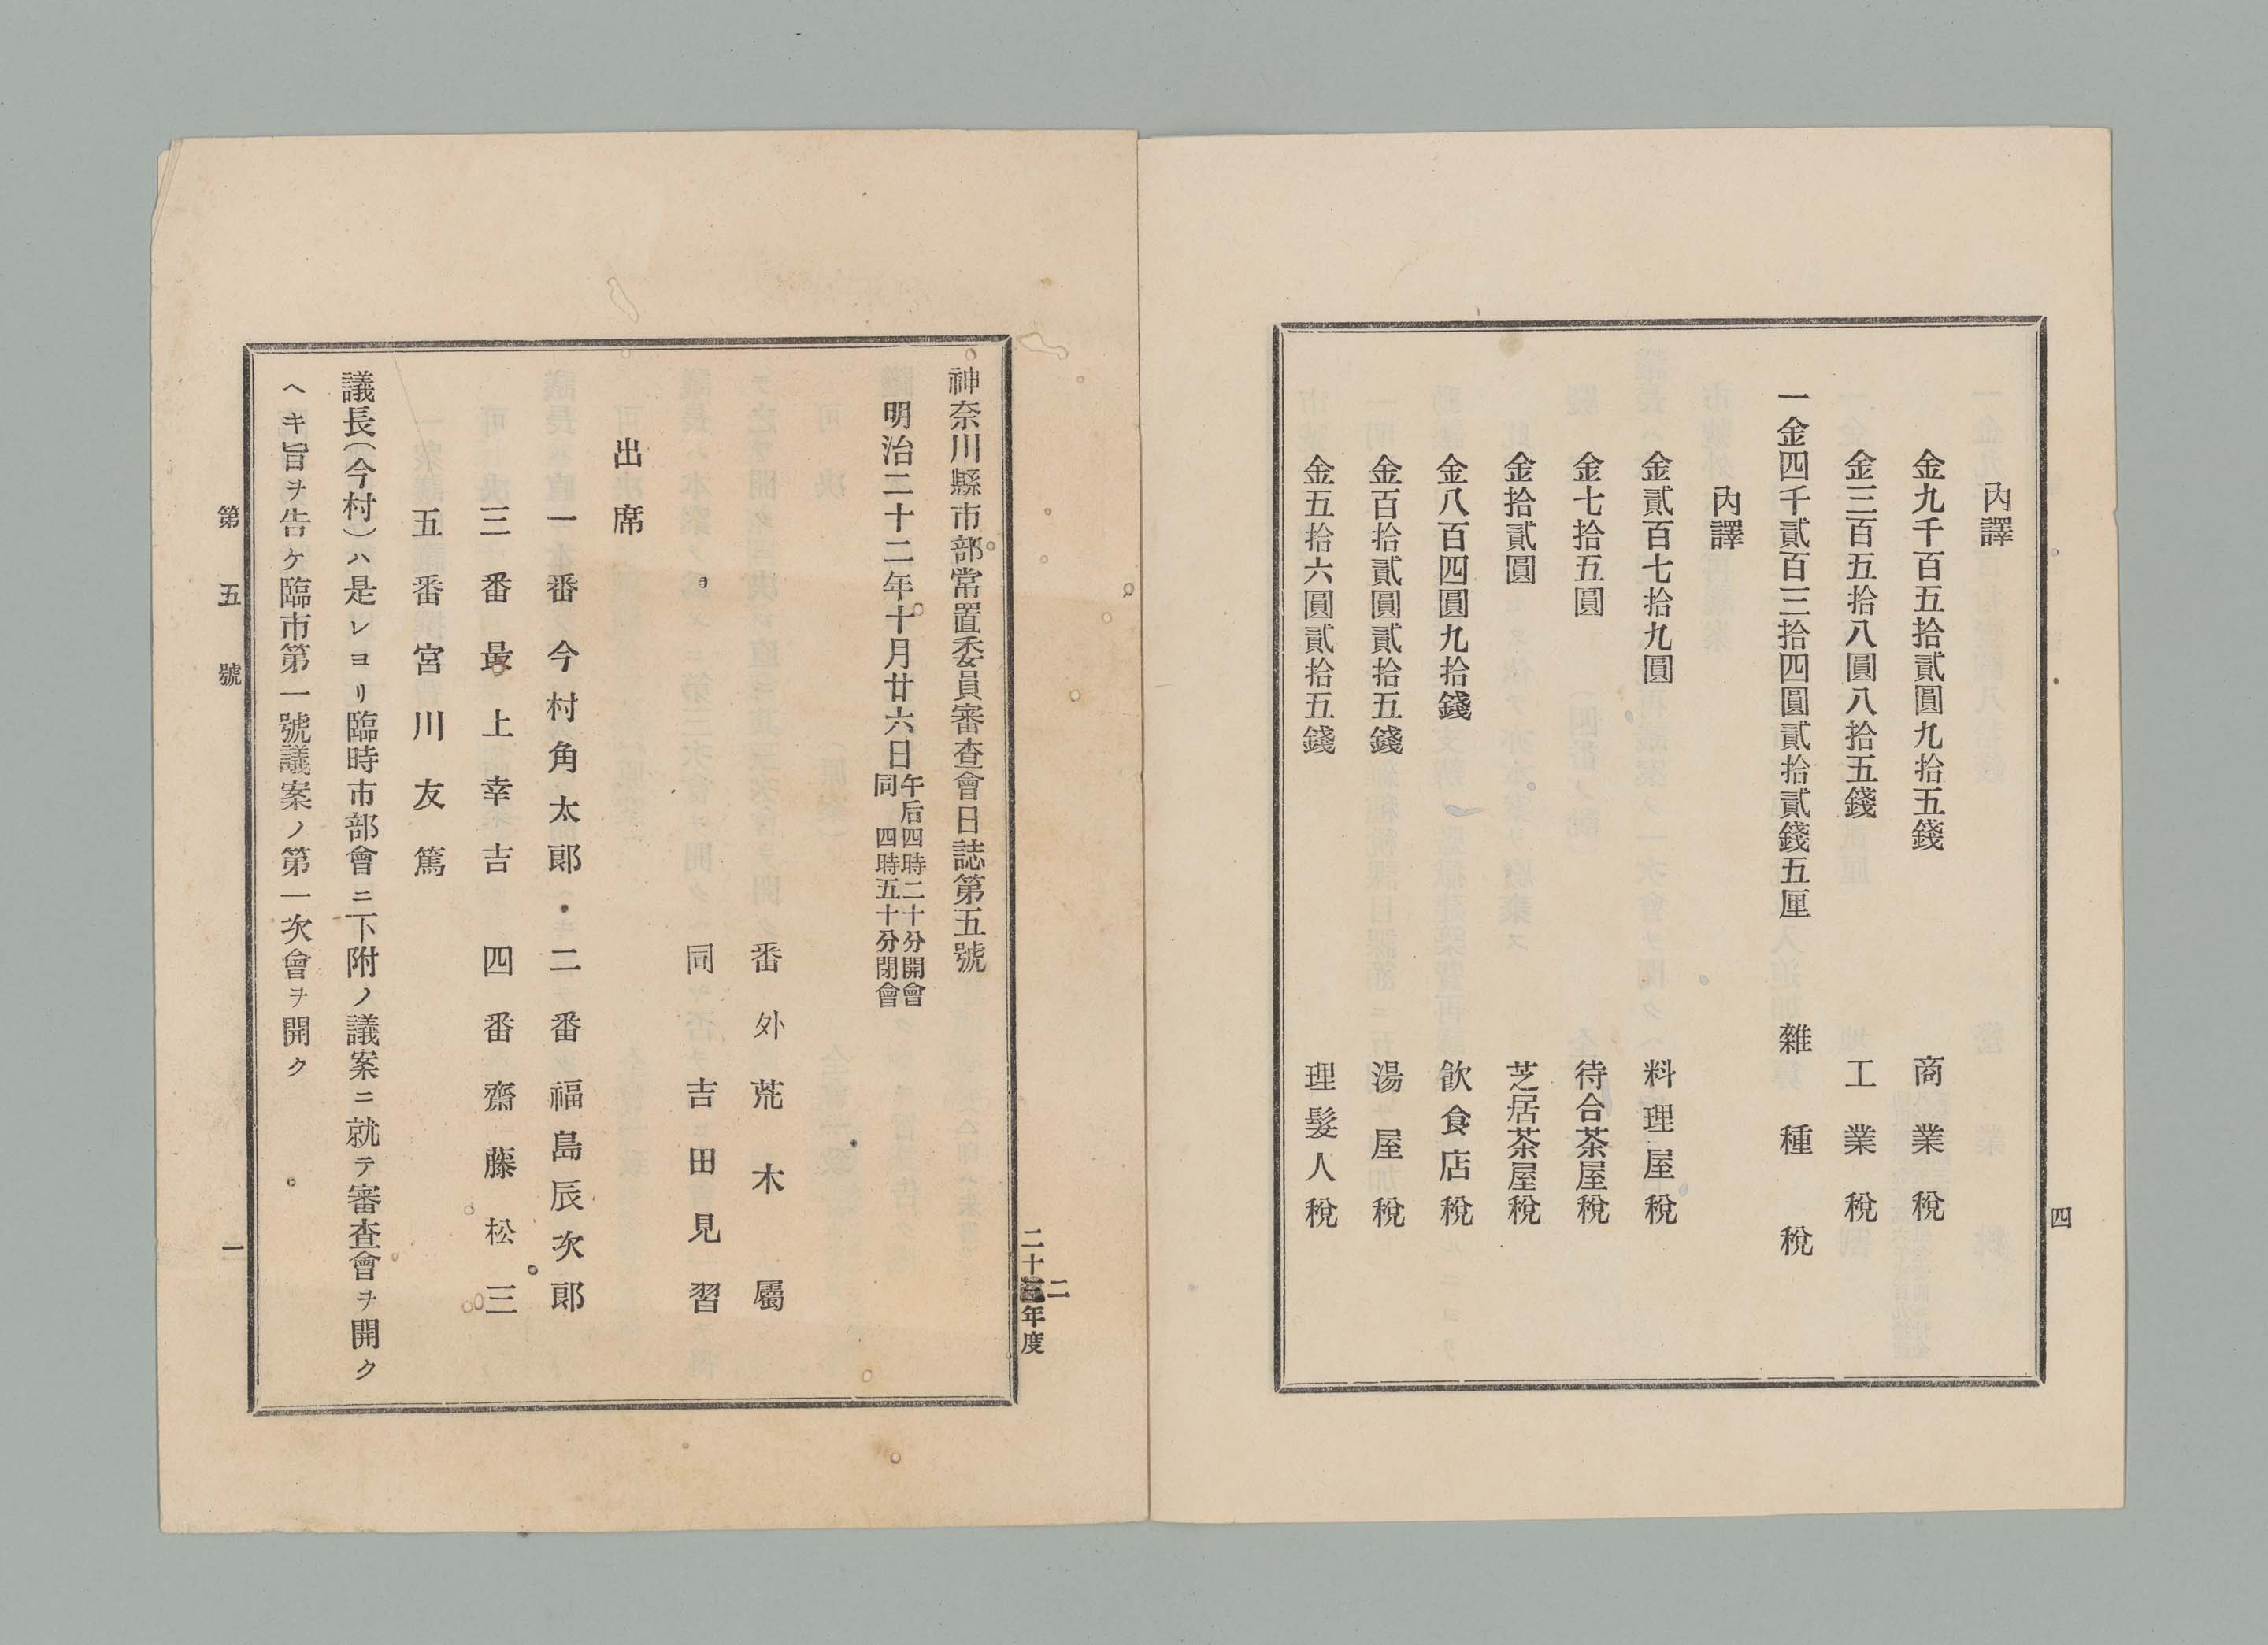 四
內譯
金九千百五拾貳圓九拾五錢 商業稅
金三百五拾八圓八拾五錢 工業稅
一金四千貳百三拾四圓貳拾貳錢五厘 雜種稅
內譯
金貳百七拾九圓 料理屋稅
金七拾五圓 待合茶屋稅
金拾貳圓 芝居茶屋稅
金八百四圓九拾錢 飮食店稅
金百拾貳圓貳拾五錢 湯屋稅
金五拾六圓貳拾五錢 理髮人稅
二十二年度
神奈川縣市部常置委員審查會日誌第五號
明治二十二年十月廿六日
午后四時二十分開會
同四時五十分閉會
番外荒木屬
同吉田見習
出席
一番今村角太郞・二番福島辰次郞
三番最上幸吉 四番齋藤松三
五番宮川友篤
議長(今村)ハ是レヨリ臨時市部會ニ下附ノ議案ニ就テ審查會ヲ開ク
ヘキ旨ヲ告ケ臨市第一號議案ノ第一次會ヲ開ク
第五號 一